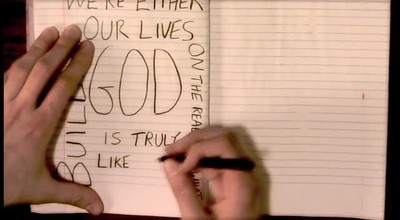 WE'RE EITHER
BUILD
OUR LIVES
ON THE REAL
GOD
IS TRULY
LIKE